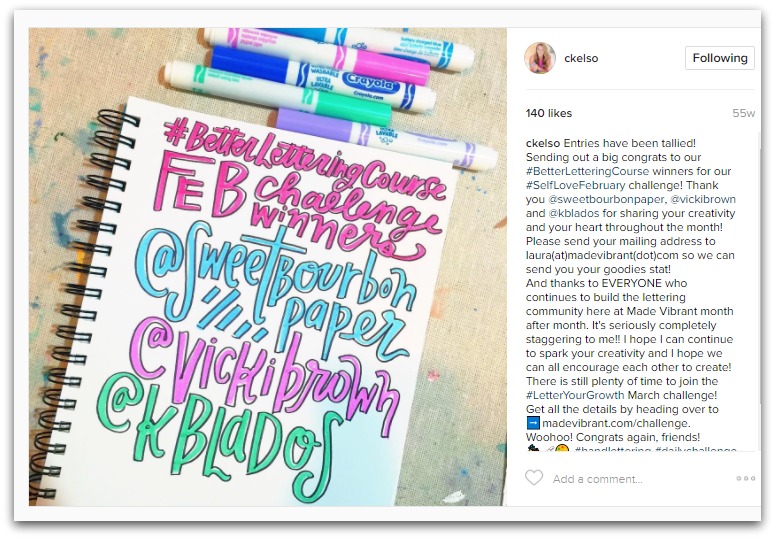 WASHABLE
ULTRA
LAVABLE
Crayola
Crayola.com
ULTRA
LAVABLE
#BetterLetteringCourse
FEB challenge
winners
@Sweetbourbon
paper
@vickibrown
@KBLADOS
ckelso
Following
140 likes
55w
ckelso Entries have been tallied!
Sending out a big congrats to our
#BetterLetteringCourse winners for our
#SelfLoveFebruary challenge! Thank
you @sweetbourbonpaper, @vickibrown
and @kblados for sharing your creativity
and your heart throughout the month!
Please send your mailing address to
laura(at)madevibrant(dot)com so we can
send you your goodies stat!
And thanks to EVERYONE who
continues to build the lettering
community here at Made Vibrant month
after month. It's seriously completely
staggering to me!! I hope I can continue
to spark your creativity and I hope we
can all encourage each other to create!
There is still plenty of time to join the
#LetterYourGrowth March challenge!
Get all the details by heading over to
➡ madevibrant.com/challenge.
Woohoo! Congrats again, friends!
#handlettering #dailychallenge
Add a comment...